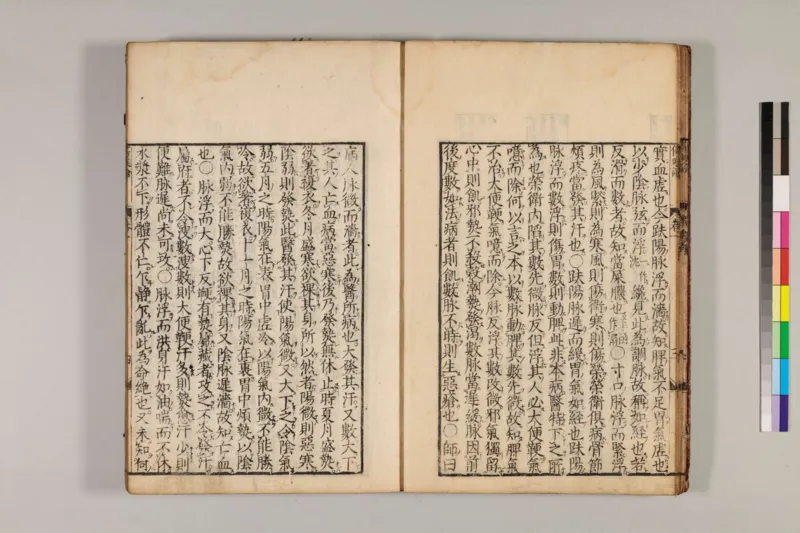 實血虛也今趺陽脉浮而濇故知脾氣不足胃氣虛也
以少陰脉弦而浮纔見此為調脉故稱如經也若
反滑而數者故知當屎膿也○寸口脉浮而緊浮
則為風緊則為寒風則傷衛寒則傷榮榮衛俱病骨節
煩疼當發其汗也○趺陽脉遲而緩胃氣如經也趺陽
脉浮而數浮則傷胃數則動脾此非本病醫特下之所
為也榮衛内陷其數先微脉反但浮其人必大便鞕氣
噫而除何以言之本以數脉動脾其數先微故知脾氣
不治大便鞕氣噫而除今脉反浮其數改微邪氣獨留
心中則飢邪熱不殺穀潮熱發渴數脉當遲緩脉因前
後度數如法病者則飢數脉不時則生惡瘡也○師曰
病人脉微而濇者此為醫所病也大發其汗又數大下
之其人亡血病當惡寒後乃發熱無休止時夏月盛熱
欲著複衣冬月盛寒欲裸其身所以然者陽微則惡寒
陰弱則發熱此醫發其汗使陽氣微又大下之令陰氣
弱五月之時陽氣在表胃中虛冷以陽氣内微不能勝
冷故欲著複衣十一月之時陽氣在裏胃中煩熱以陰
氣内弱不能勝熱故欲裸其身又陰脉遲濇故知亡血
也○脉浮而大心下反鞕有熱屬藏者攻之不令發汗
屬府者不令溲數溲數則大便鞕汗多則熱愈汗少則
便難脉遲尚未可攻○脉浮而洪身汗如油喘而不休
水漿不下形體不仁乍靜乍亂此為命絶也又未知何